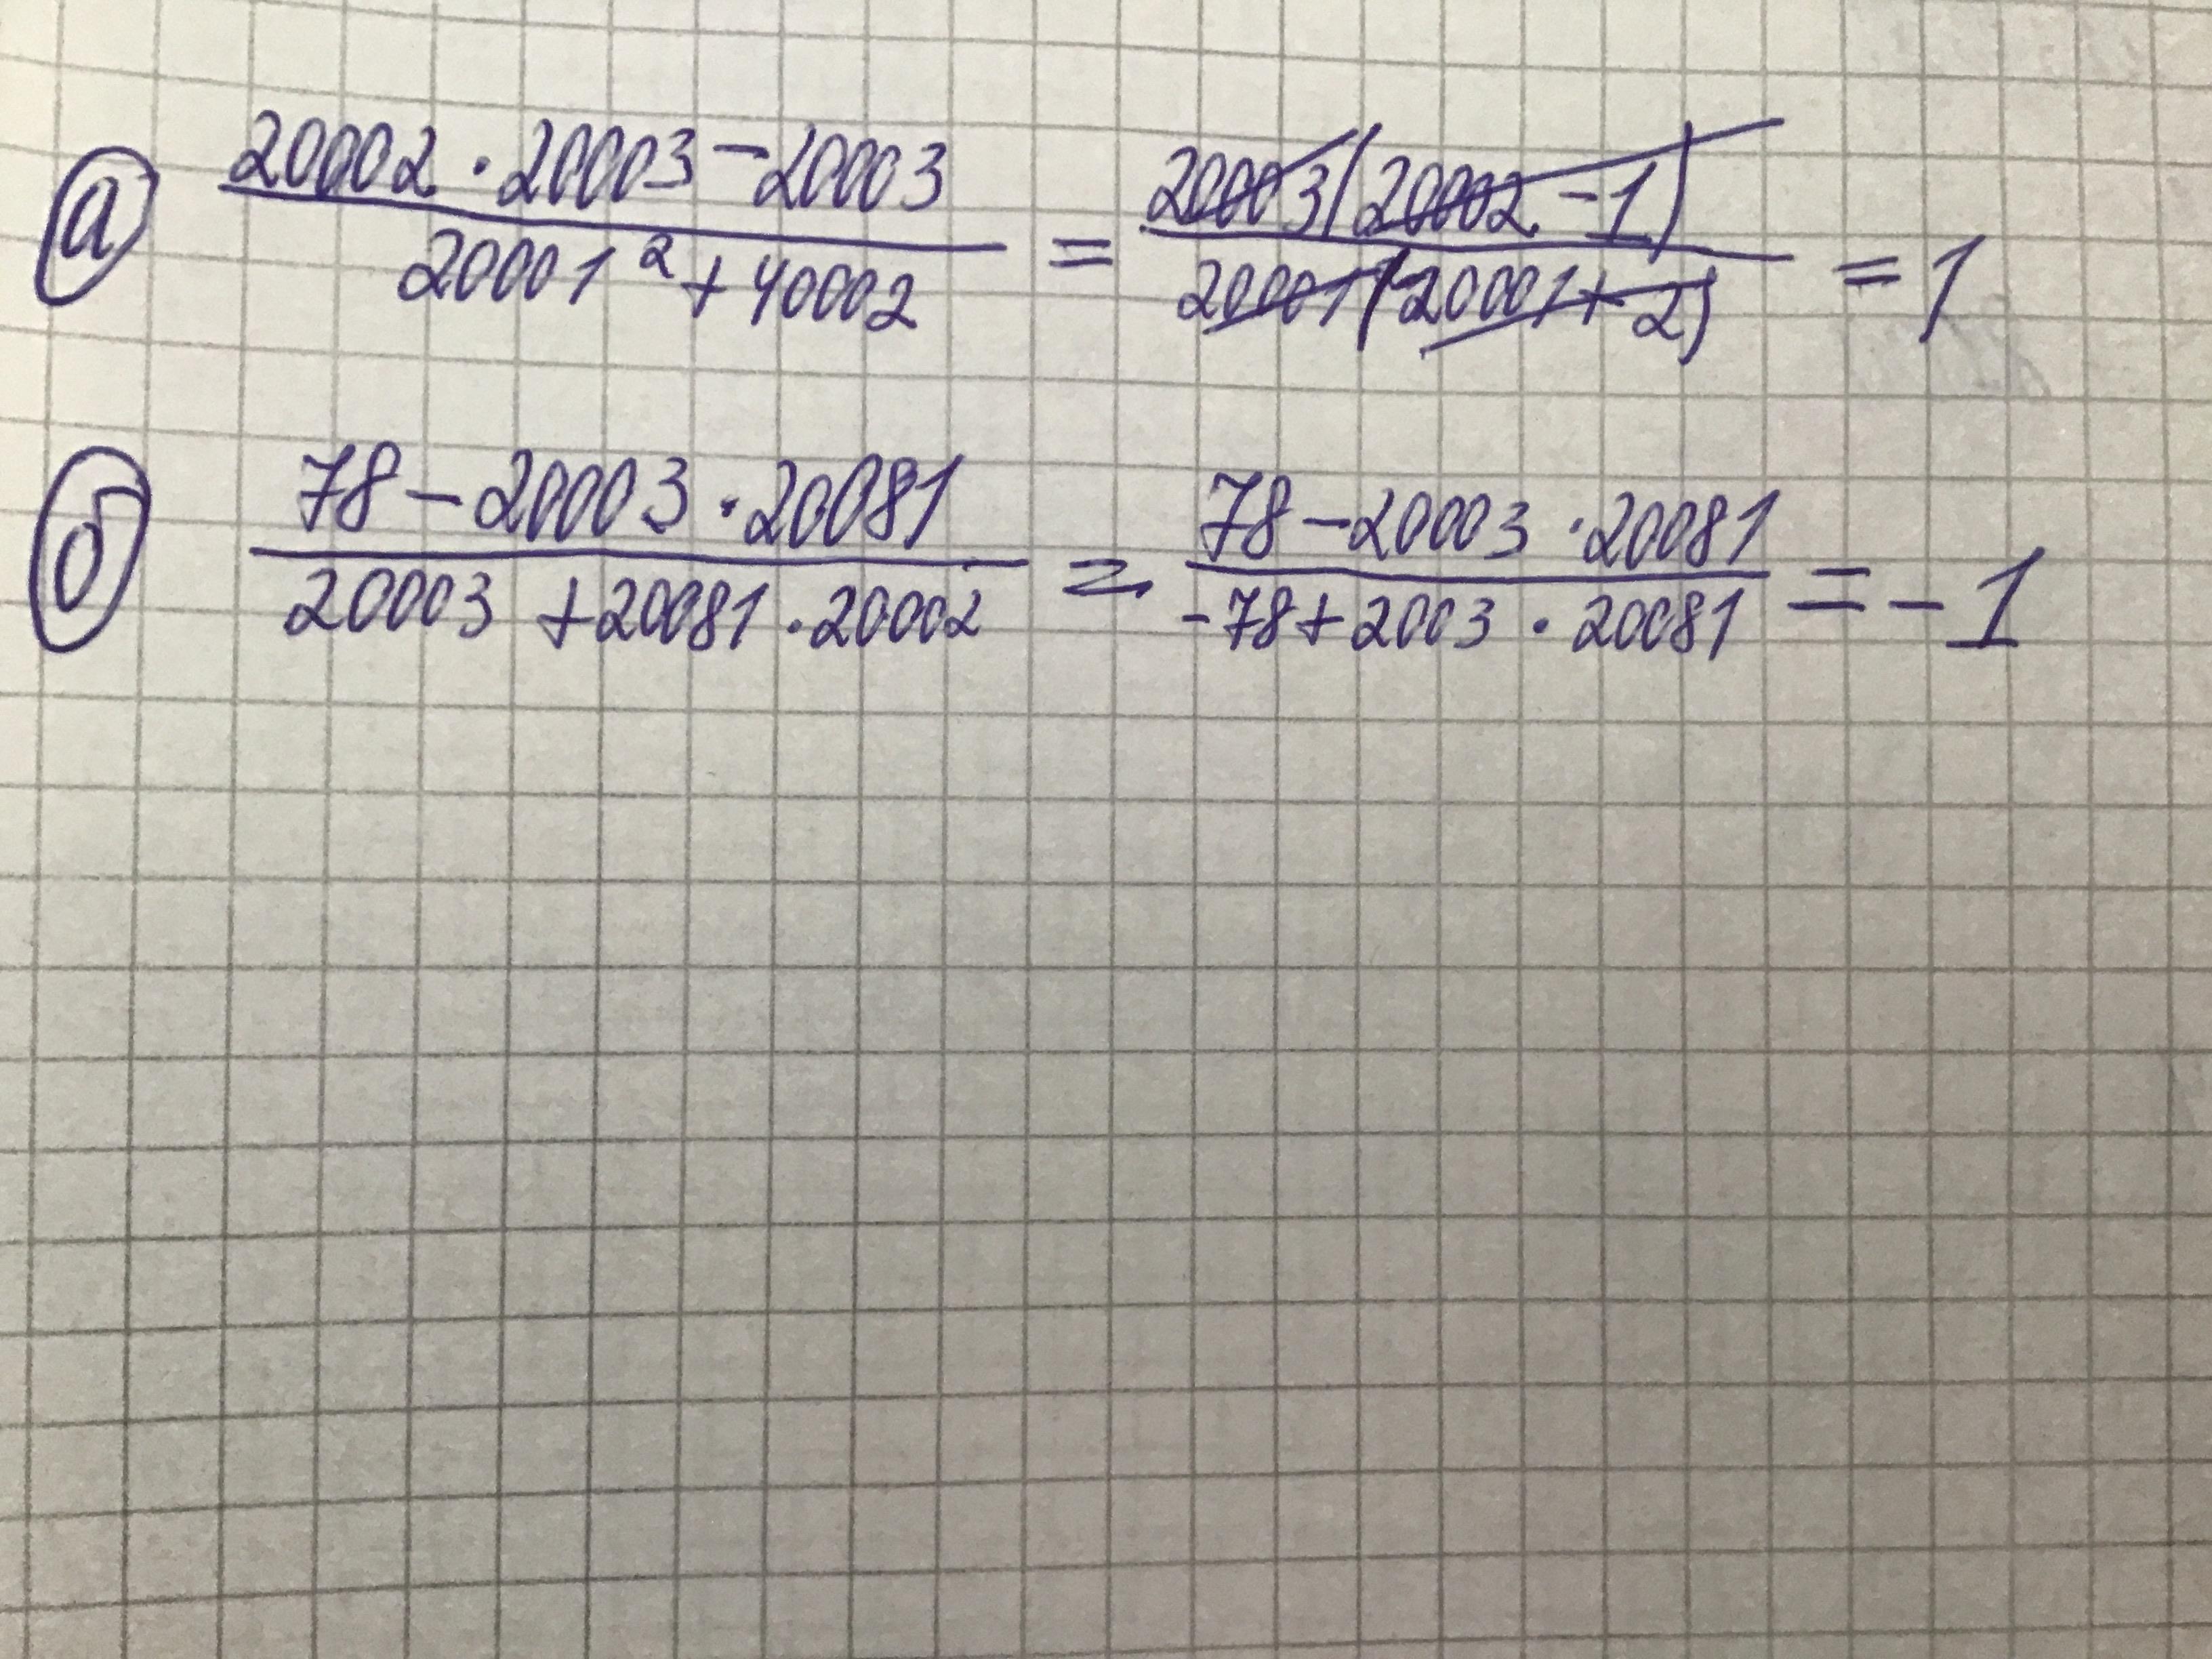 а 20002 · 20003 - 20003 / 20001² + 40002 = 20003(20002 - 1) / 20001(20001 + 2) = 1
б 78 - 20003 · 20081 / 20003 + 20081 · 20002 = 78 - 20003 · 20081 / -78 + 2003 · 20081 = -1